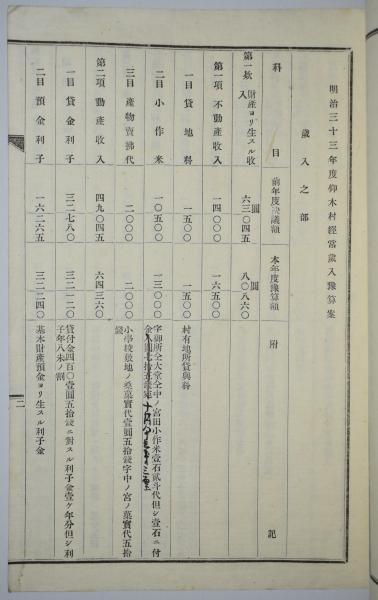 明治三十三年度仰木村經常歲入豫算案
歲入之部
科目 前年度決議額 本年度豫算額 附記
第一欵 財產ヨリ生スル收入 六三〇四五圓 八〇八六〇圓
第一項 不動產收入 一四〇〇〇 一六五〇〇
一目 貸地料 一五〇〇 一五〇〇 村有地所貸與料
二目 小作米 一〇五〇〇 一三〇〇〇 字御所仝大堂仝中ノ宮田小作米壹石貳斗代但シ壹石ニ付
金
三目 產物賣拂代 二〇〇〇 二〇〇〇 小學校敷地ノ桑葉實代壹圓五拾錢字中ノ宮ノ菓實代五拾
錢
第二項 動產收入 四九〇四五 六四三六〇
一目 貸金利子 三二七八〇 三二一二〇 貸付金四百〇壹圓五拾錢ニ對スル利子金壹ケ年分但シ利
子年八朱ノ割
二目 預金利子 一六二六五 三二二四〇 基本財產預金ヨリ生スル利子金
二